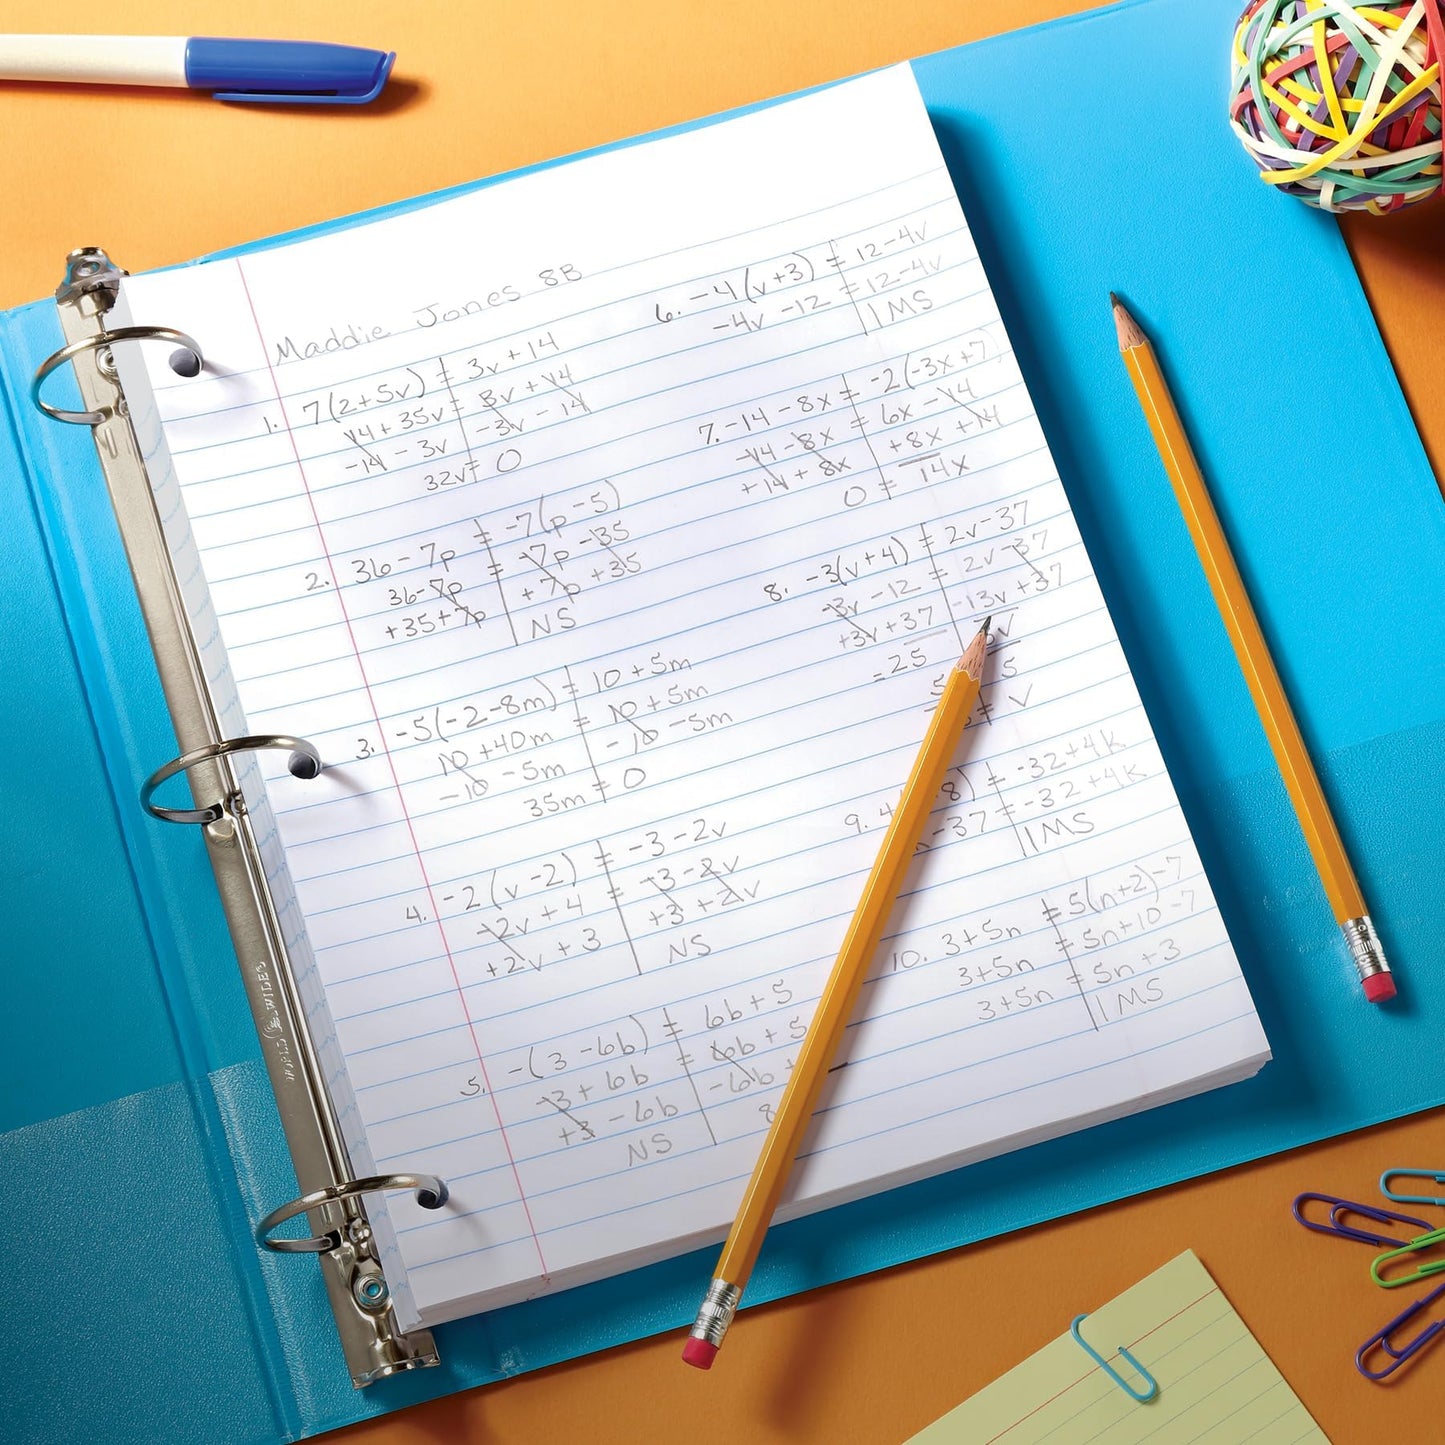 Maddie Jones 8B
1. 7(2+5v) = 3v + 14
14 + 35v = 3v + 14
-14 - 3v -3v - 14
32v = 0
2. 36 - 7p = -7(p - 5)
36 - 7p = -7p - 35
+35 + 7p + 7p + 35
NS
3. -5(-2 - 8m) = 10 + 5m
10 + 40m = 10 + 5m
-10 - 5m -10 - 5m
35m = 0
4. -2(v - 2) = -3 - 2v
-2v + 4 = -3 - 2v
+2v + 3 +3 + 2v
NS
5. -(3 - 6b) = 6b + 5
-3 + 6b = 6b + 5
+3 - 6b -6b +
NS 8
6. -4(v + 3) = 12 - 4v
-4v - 12 = 12 - 4v
IMS
7. -14 - 8x = -2(-3x + 7)
-14 - 8x = 6x - 14
+14 + 8x +8x + 14
0 = 14x
8. -3(v + 4) = 2v - 37
-3v - 12 = 2v - 37
+3v + 37 -13v + 37
= 25 5v
5 5
= v
9. 4( 8) = -32 + 4k
-37 = -32 + 4k
IMS
10. 3 + 5n = 5(n + 2) - 7
3 + 5n = 5n + 10 - 7
3 + 5n = 5n + 3
IMS
WORLD WIDE